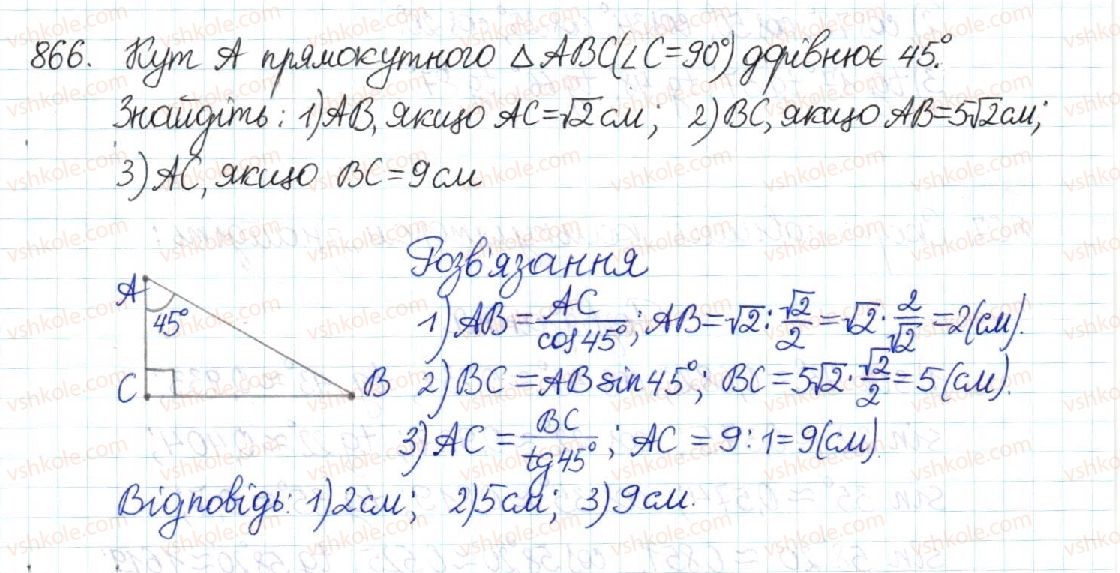 866. Кут А прямокутного △ABC(∠C=90°) дорівнює 45°.
Знайдіть: 1) AB, якщо AC=√2 см; 2) BC, якщо AB=5√2 см;
3) AC, якщо BC=9 см
Розв'язання
A
45°
C
B
1) AB = AC/cos45°; AB=√2 : √2/2 = √2 · 2/√2 = 2(см).
2) BC = AB sin45°; BC = 5√2 · √2/2 = 5 (см).
3) AC = BC/tg45°; AC = 9 : 1 = 9(см)
Відповідь: 1) 2 см; 2) 5 см; 3) 9 см.
vshkole.com